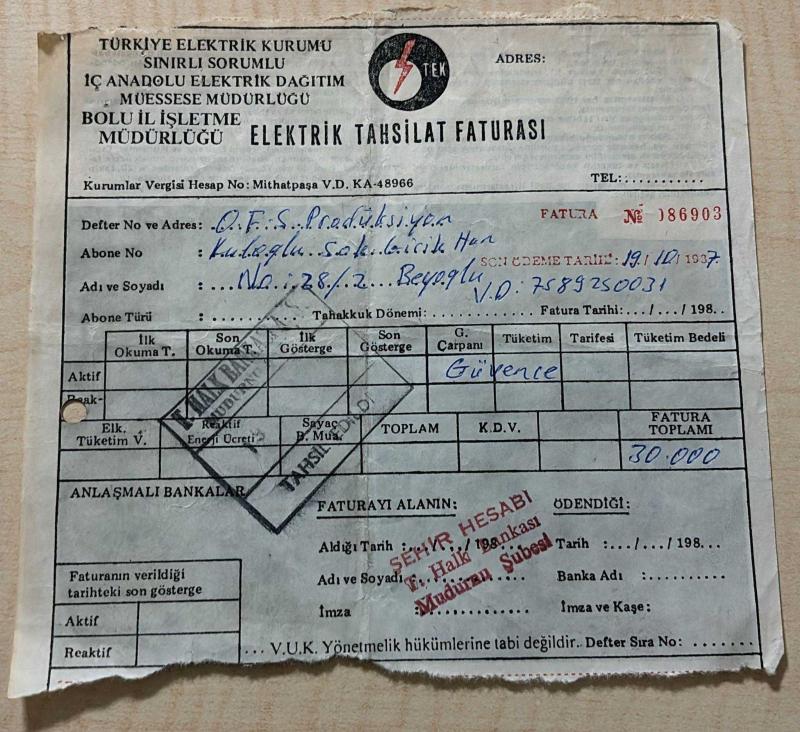 TÜRKİYE ELEKTRİK KURUMU
SINIRLI SORUMLU
İÇ ANADOLU ELEKTRİK DAĞITIM
MÜESSESE MÜDÜRLÜĞÜ
BOLU İL İŞLETME
MÜDÜRLÜĞÜ
TEK
ADRES:
ELEKTRİK TAHSİLAT FATURASI
Kurumlar Vergisi Hesap No: Mithatpaşa V.D. KA-48966
TEL:...........
Defter No ve Adres: O.F.S. Prodüksiyon
FATURA № 086903
Abone No : Kuloğlu Sok. Han
SON ÖDEME TARİHİ: 19/10/1987
Adı ve Soyadı : No: 28/2 Beyoğlu
V.D: 7589250031
Abone Türü : Tahakkuk Dönemi: Fatura Tarihi:.../.../198..
İlk Okuma T. Son Okuma T. İlk Gösterge Son Gösterge G. Çarpanı Tüketim Tarifesi Tüketim Bedeli
Aktif Güvence
Reak-
Elk. Tüketim V. Reaktif Enerji Ücreti Sayaç B. Mua. TOPLAM K.D.V. FATURA TOPLAMI
30.000
T. HALK BANKASI A.Ş.
MUDURNU
TAHSİL EDİLDİ
ANLAŞMALI BANKALAR
FATURAYI ALANIN: ÖDENDİĞİ:
Aldığı Tarih :.../.../198... Tarih :.../.../198...
Adı ve Soyadı Banka Adı :.........
İmza : İmza ve Kaşe:
ŞEHİR HESABI
T. Halk Bankası
Mudurnu Şubesi
Faturanın verildiği
tarihteki son gösterge
Aktif
Reaktif
... V.U.K. Yönetmelik hükümlerine tabi değildir.. Defter Sıra No: .......